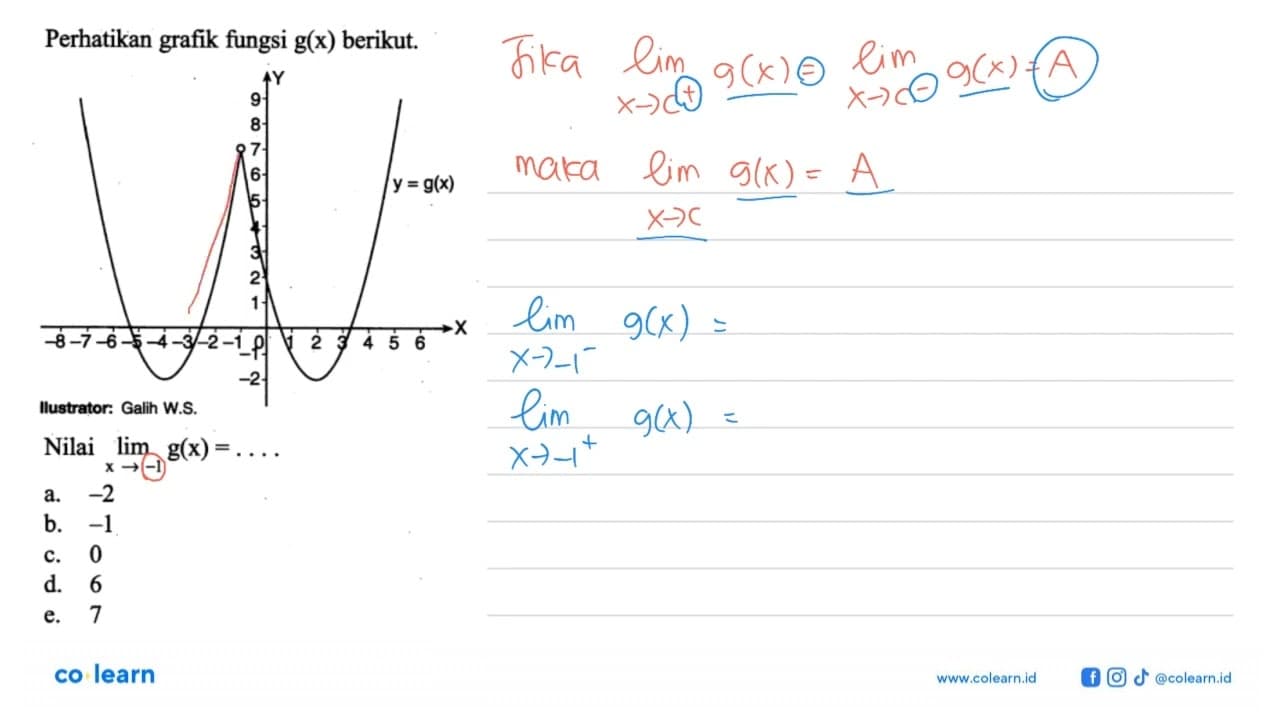 Perhatikan grafik fungsi g(x) berikut.
Y
9
8
7
6
5
4
3
2
1
y = g(x)
X
-8 -7 -6 -5 -4 -3 -2 -1 0 1 2 3 4 5 6
-1
-2
Ilustrator: Galih W.S.
Nilai lim g(x) = . . . .
x → -1
a. -2
b. -1
c. 0
d. 6
e. 7
Jika lim g(x) = lim g(x) = A
x→c⁺ x→c⁻
maka lim g(x) = A
x→c
lim g(x) =
x→-1⁻
lim g(x) =
x→-1⁺
co learn
www.colearn.id
@colearn.id